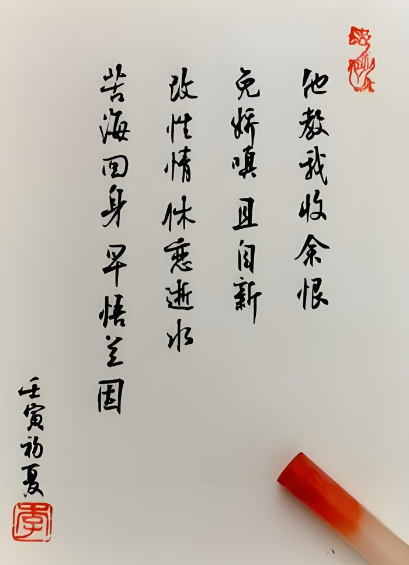 他教我收余恨
免娇嗔且自新
改性情休恋逝水
苦海回身早悟兰因
壬寅初夏
李